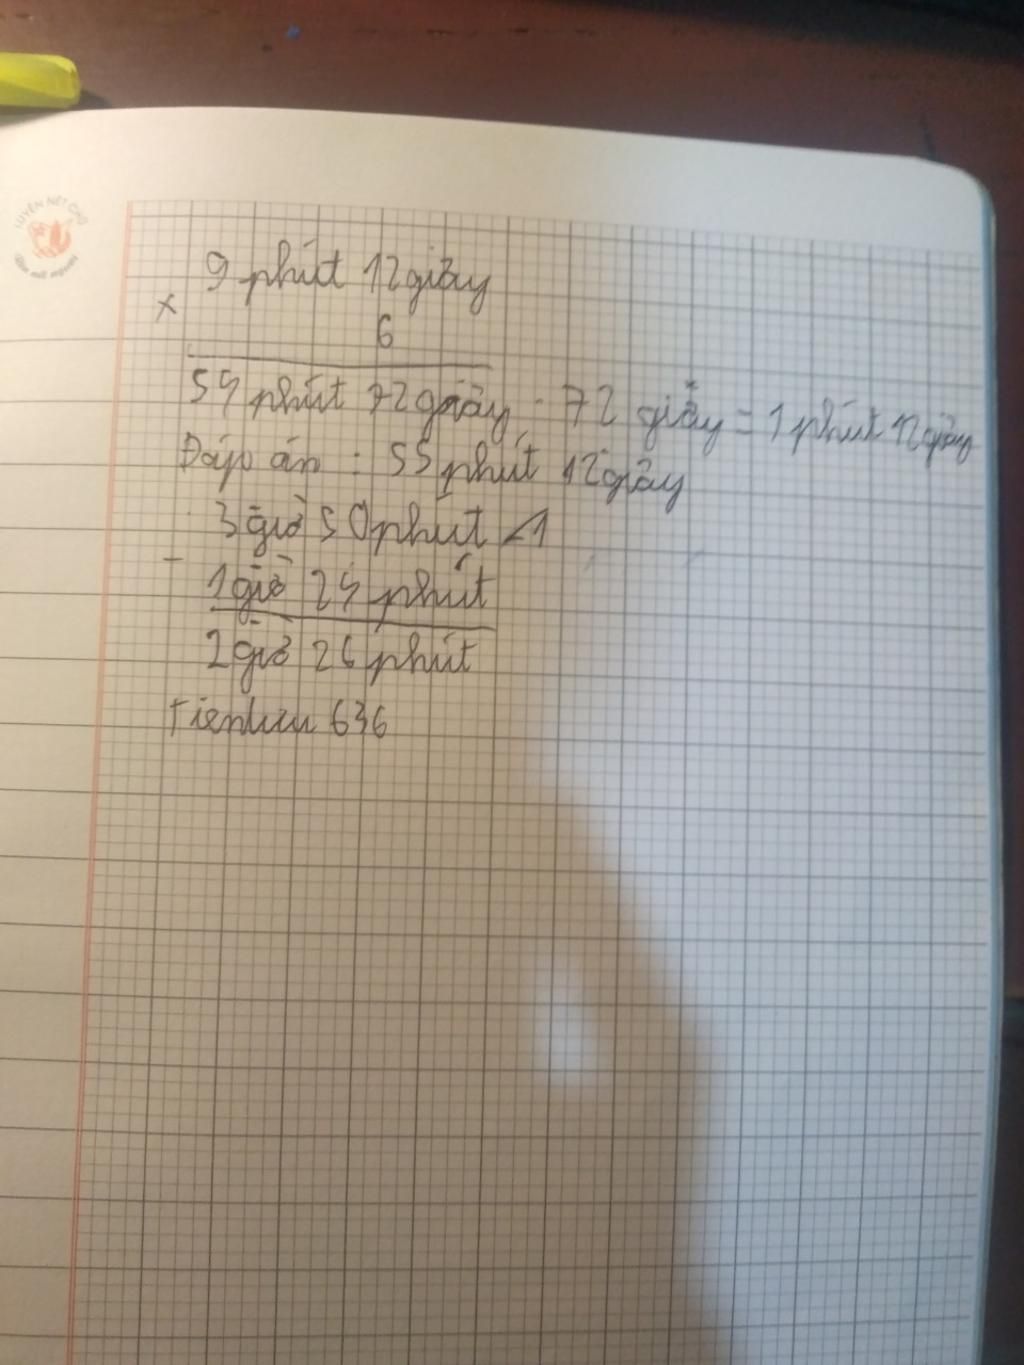 LUYỆN NÉT CHỮ
9 phút 12 giây
×
6
54 phút 72 giây · 72 giây = 1 phút 12 giây
Đáp án : 55 phút 12 giây
3 giờ 50 phút
-
1 giờ 24 phút
2 giờ 26 phút
636